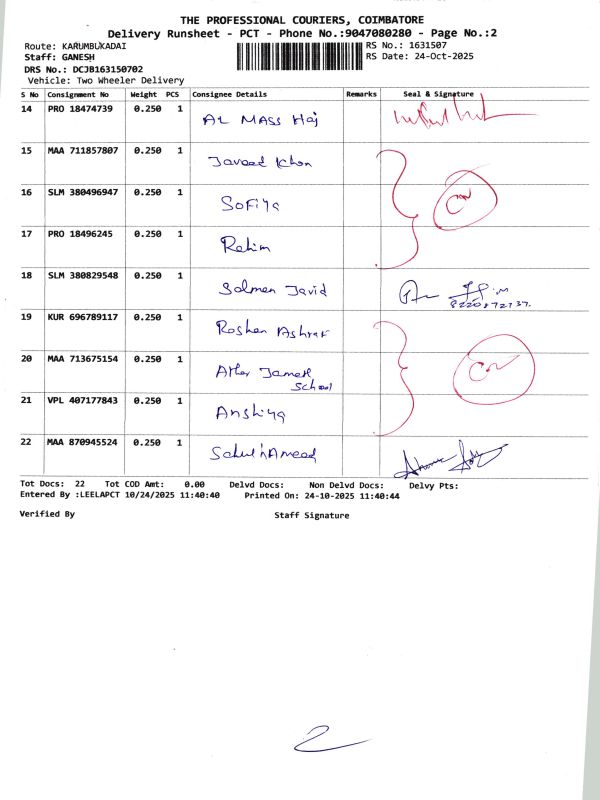 THE PROFESSIONAL COURIERS, COIMBATORE
Delivery Runsheet - PCT - Phone No.:9047080280 - Page No.:2
Route: KARUMBUKADAI
RS No.: 1631507
Staff: GANESH
RS Date: 24-Oct-2025
DRS No.: DCJB163150702
Vehicle: Two Wheeler Delivery
S No Consignment No Weight PCS Consignee Details Remarks Seal & Signature
14 PRO 18474739 0.250 1 AL MASS Haj
15 MAA 711857807 0.250 1 Javeed Khan
16 SLM 380496947 0.250 1 Sofiya
17 PRO 18496245 0.250 1 Rahim
18 SLM 380829548 0.250 1 Salman Javid
19 KUR 696789117 0.250 1 Roshan Ashraf
20 MAA 713675154 0.250 1 School
21 VPL 407177843 0.250 1 Anshiya
22 MAA 870945524 0.250 1
Tot Docs: 22 Tot COD Amt: 0.00 Delvd Docs: Non Delvd Docs: Delvy Pts:
Entered By :LEELAPCT 10/24/2025 11:40:40 Printed On: 24-10-2025 11:40:44
Verified By Staff Signature
2